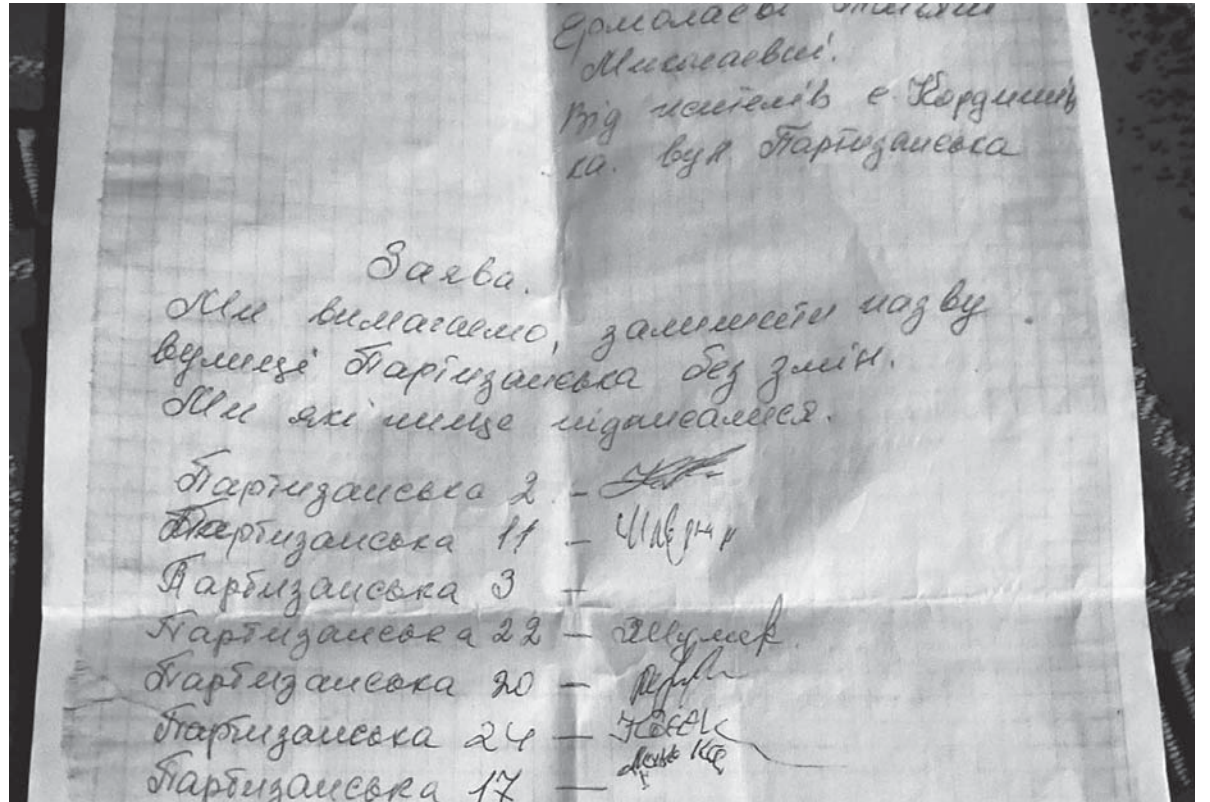 Миколаєвні.
Від жителів с. Кордишів
ка. вул. Партизанська
Заява.
Ми вимагаємо, залишити назву
вулиці Партизанська без змін.
Ми які нижче підписалися.
Партизанська 2 -
Партизанська 11 -
Партизанська 3 -
Партизанська 22 -
Партизанська 20 -
Партизанська 24 -
Партизанська 17 -